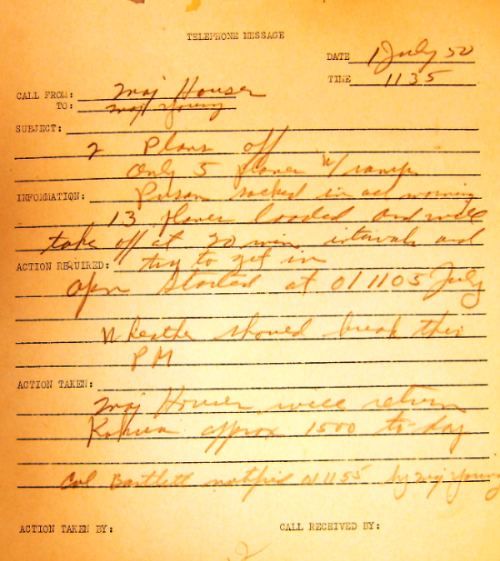 TELEPHONE MESSAGE
DATE 1 July 50
TIME 1135
CALL FROM: Maj Houser
TO: Maj Young
SUBJECT:
2 Plans off
Only 5 planes w/ramp
INFORMATION: Pusan socked in all morning
13 planes loaded and will
take off at 20 min intervals and
ACTION REQUIRED: try to get in
Opn started at 011105 July
Weather should break this
PM
ACTION TAKEN:
Maj Houser will return
approx 1500 to-day
Col Bartlett notified 011155 by Maj Young
ACTION TAKEN BY:
CALL RECEIVED BY:
2